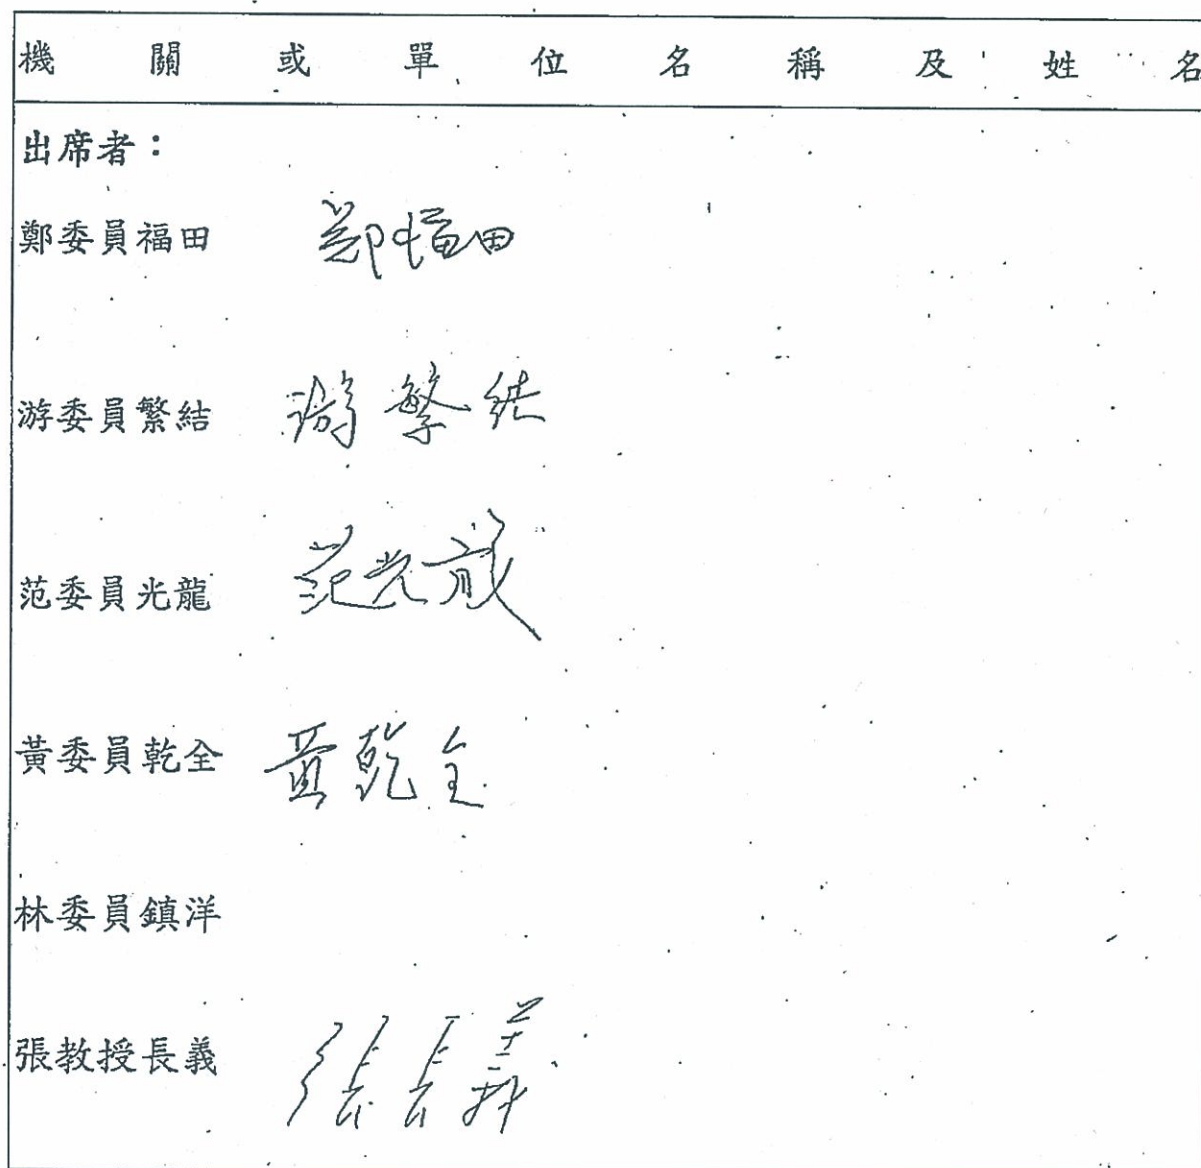 機關或單位名稱及姓名
出席者：
鄭委員福田 鄭福田
游委員繁結 游繁結
范委員光龍 范光龍
黃委員乾全 黃乾全
林委員鎮洋
張教授長義 張長義